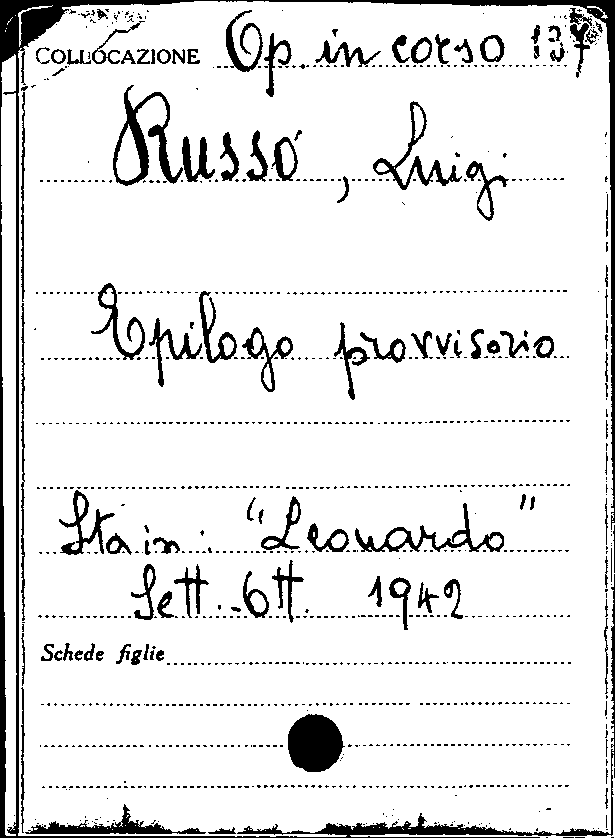 COLLOCAZIONE Op. in corso 137
Russo, Luigi
Epilogo provvisorio
Sta in: "Leonardo"
Sett.-Ott. 1942
Schede figlie